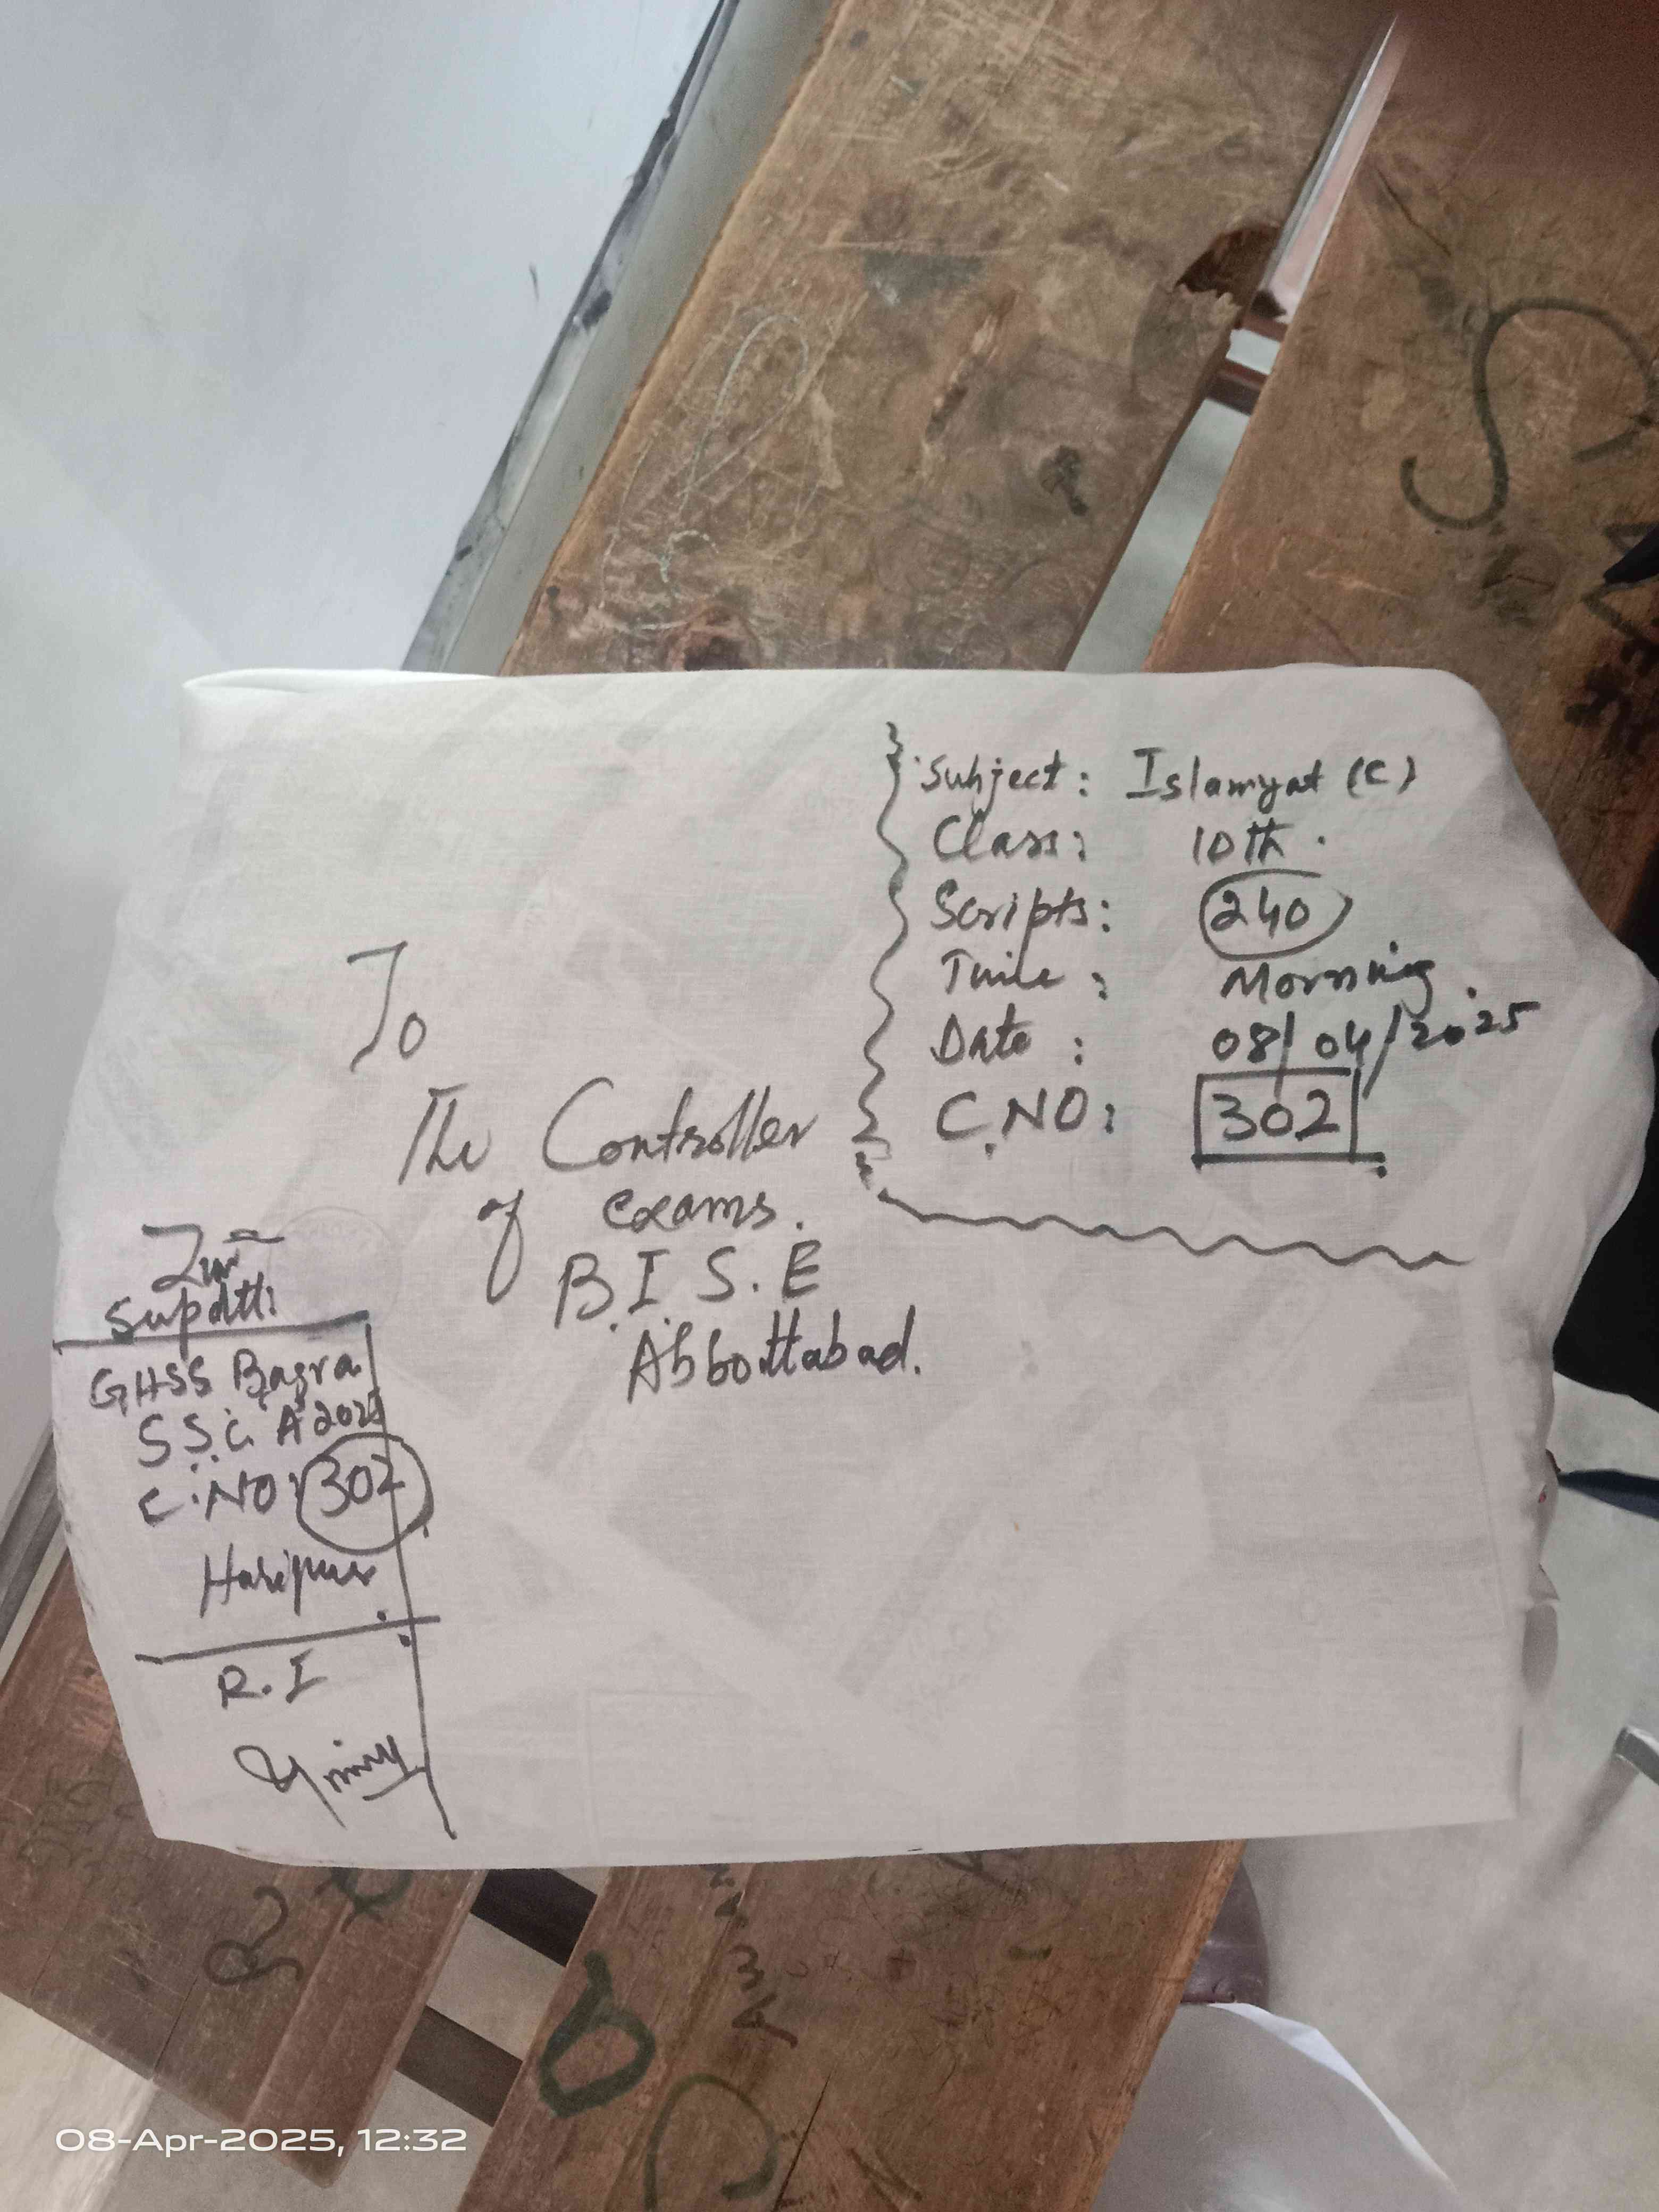 Subject: Islamyat (C)
Class: 10th.
Scripts: 240
Time: Morning.
Date: 08/04/2025
C.NO: 302
To
The Controller
of exams.
B.I.S.E
Abbottabad.
Supdtt:
GHSS Bagra
S.S.C. A 2025
C.NO: 302
Haripur.
R.I
08-Apr-2025, 12:32